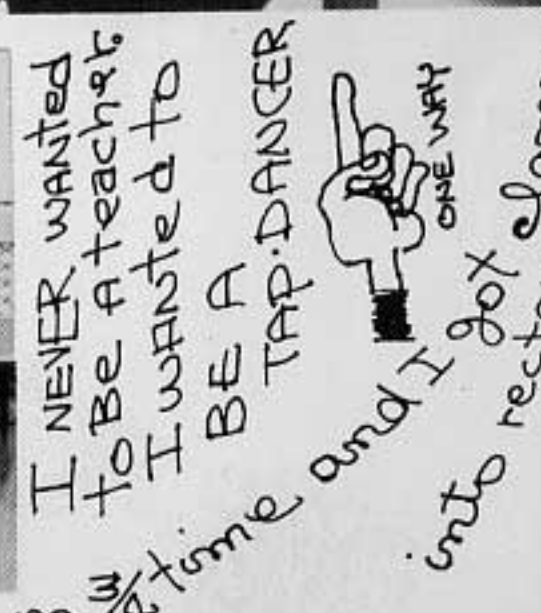 I NEVER WANted
to BE A teacher.
I wANted to
BE A
TAP·DANCER
ONE WAY
time and I got
into